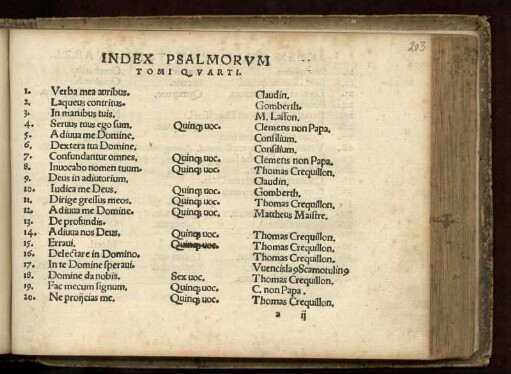 203
INDEX PSALMORVM
TOMI QVARTI.
1. Verba mea auribus. Claudin.
2. Laqueus contritus. Gomberth.
3. In manibus tuis. M. Lasson.
4. Seruus tuus ego sum. Quinqꝫ uoc. Clemens non Papa.
5. Adiuua me Domine. Consilium.
6. Dextera tua Domine. Consilium.
7. Confundantur omnes. Quinqꝫ uoc. Clemens non Papa.
8. Inuocabo nomen tuum. Quinqꝫ uoc. Thomas Crequillon.
9. Deus in adiutorium. Claudin.
10. Iudica me Deus. Quinqꝫ uoc. Gomberth.
11. Dirige gressus meos. Quinqꝫ uoc. Thomas Crequillon.
12. Adiuua me Domine. Quinqꝫ uoc. Mattheus Maistre.
13. De profundis.
14. Adiuua nos Deus. Quinqꝫ uoc. Thomas Crequillon.
15. Erraui. Quinqꝫ uoc. Thomas Crequillon.
16. Delectare in Domino. Thomas Crequillon.
17. In te Domine speraui. Vuencislaꝰ Scamotulinꝰ
18. Domine da nobis. Sex uoc. Thomas Crequillon.
19. Fac mecum signum. Quinqꝫ uoc. C. non Papa.
20. Ne proijcias me. Quinqꝫ uoc. Thomas Crequillon.
a ij